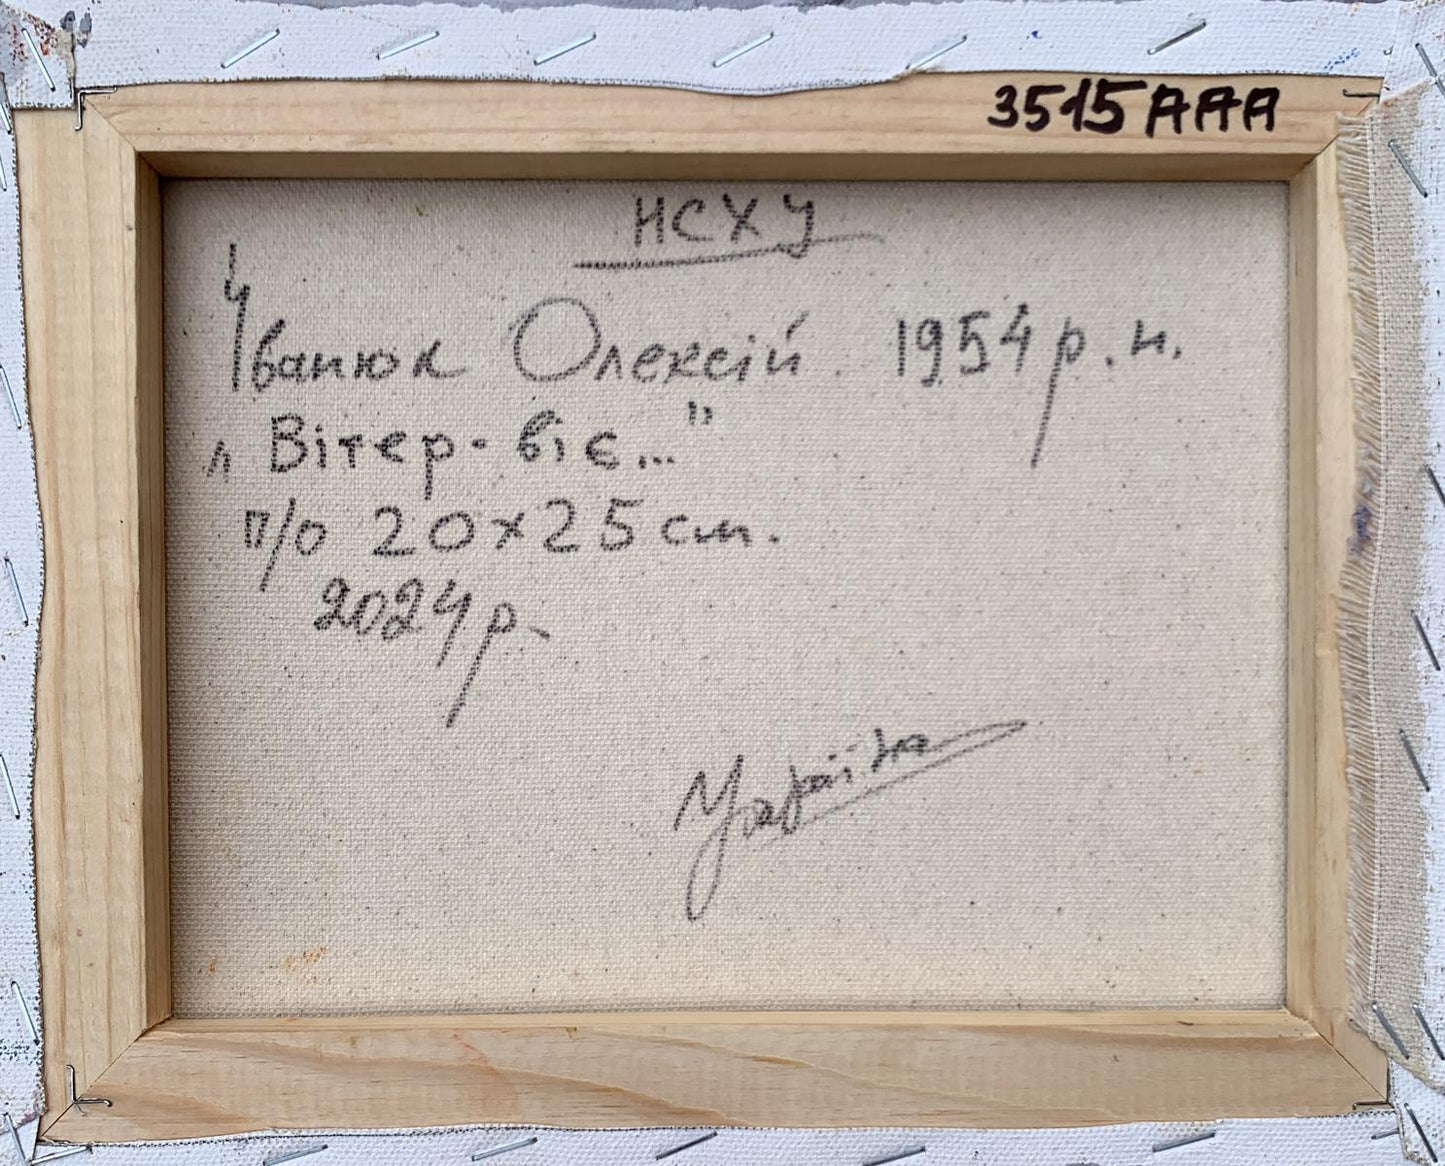 3515AAA
НСХУ
Іванюк Олексій. 1954 р. н.
„Вітер-віє..."
п/о 20х25 см.
2024 р.
Україна